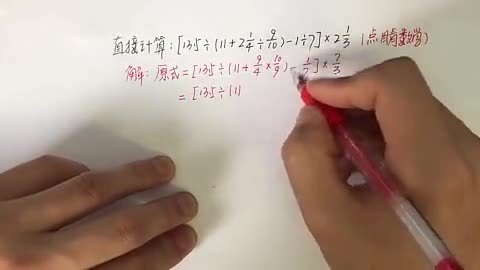 直接计算:[135÷(11+2 1/4÷9/10)-1÷7]×2 1/3 (点睛数学)
解:原式=[135÷(11+9/4×10/9)-1/7]×7/3
=[135÷(11